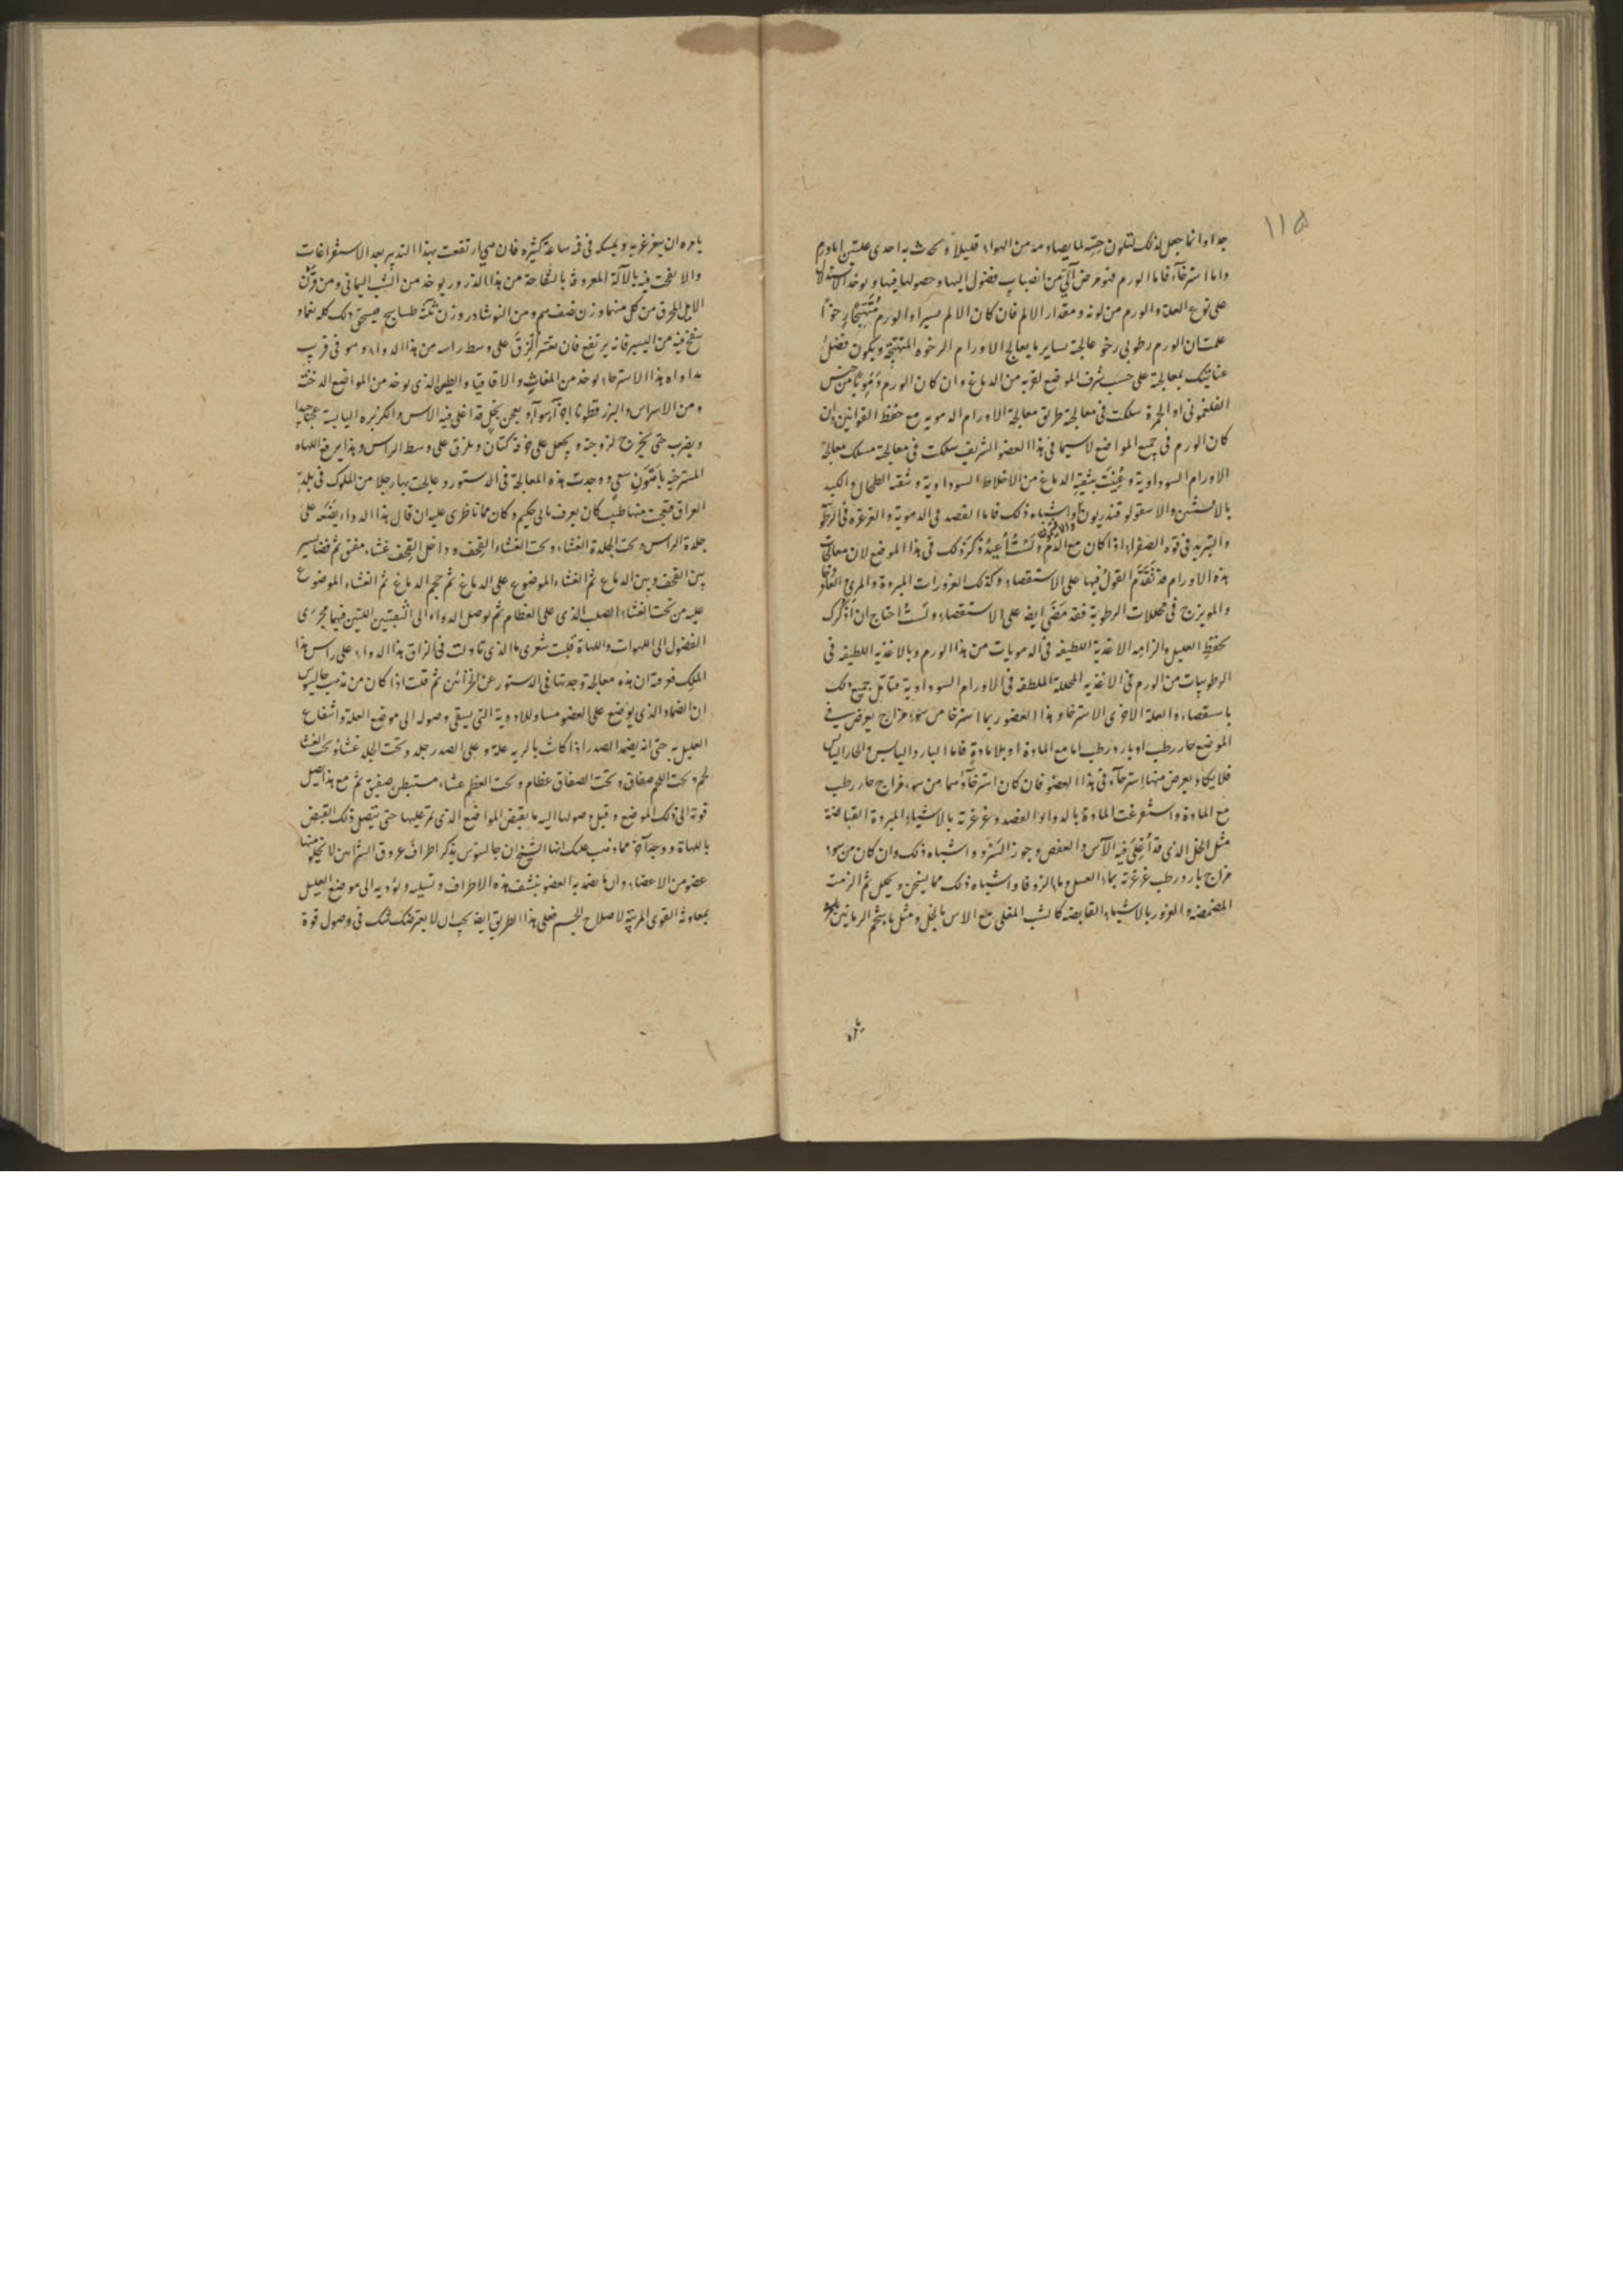 ١١٥
جدا وانما جعل كذلك لتكون حسه لما يصادمه من الهواء قليلا ويحدث به احدى علتين اما ورم
واما استرخاء فاما الورم فهو مرض آلي من انصباب فضول اليها وحصولها فيها ويوخذ الاستدلال
على نوع العلة والورم من لونه ومقدار الالم فان كان الالم يسيرا والورم متهيجا رخوا
علمت ان الورم رطوبي رخو عالجته بساير ما يعالج الاورام الرخوه المتهيجة ويكون فضل
عنايتك بمعالجته على حسب شرف الموضع لقربه من الدماغ وان كان الورم دمويا من جنس
الفلغموني او الحمرة سلكت في معالجته طريق معالجة الاورام الدمويه مع حفظ القوانين وان
كان الورم في جميع المواضع لاسيما في هذا العضو الشريف سلكت في معالجته مسلك معالجة
الاورام السوداوية وعنيت بتنقية الدماغ من الاخلاط السوداوية وتنقية الطحال والكبد
بالافسنتين والاسقولوقندريون واشباه ذلك فاما الفصد في الدموية والغرغره في الرطو
والتبريد في قوه الصفراء اذا كان مع الدم ولست أعيد ذكر ذلك في هذا الموضع لان معالجات
هذه الاورام قد تقدم القول فيها على الاستقصاء وكذلك الغرورات المبردة والمري
والمويزج في محللات الرطوبة فقد مضى ايضا على الاستقصاء ولست احتاج ان اذكرك
بحفظ العليل والزامه الاغذية اللطيفه في الدمويات من هذا الورم وبالاغذيه اللطيفه في
الرطوبيات من الورم في الاغذيه المحللة الملطفة في الاورام السوداوية فتامل جميع ذلك
باستقصاء والعلة الاخرى الاسترخاء وهذا العضو ربما استرخا من سوء مزاج يعرض في
الموضع حار رطب او بارد رطب اما مع المادة او بلا مادة فاما البارد اليابس والحار اليابس
فلا يكاد يعرض منهما استرخاء في هذا العضو فان كان استرخاؤهما من سوء مزاج حار رطب
مع المادة واستفرغت المادة بالدواء او الفصد وغرغرته بالاشياء المبردة القباضة
مثل الخل الذي قد أغلي فيه الآس والعفص وجوز السرو واشباه ذلك وان كان من سوء
مزاج بارد رطب غرغرته بماء العسل وماء الزوفا واشباه ذلك مما يسخن ويحلل ثم الزمت
المضمضه والغرور بالاشياء القابضه كالشب المغلى مع الاس بالخل ومثل ماء شحم الرمانين
يامره
يامره ان يتغرغر به ويمسكه في فمه ساعة كثيره فان هي ارتفعت بهذا التدبير بعد الاستفراغات
والا نفخت فيه بالآلة المعروفة بالنفاخة من هذا الذرور يوخذ من الشب اليماني ومن قرن
الايل المحرق من كل منهما وزن نصف درهم ومن النوشادر وزن ثلثة طساسيج فيسحق ذلك كله نعما و
ينفخ فيه من اليسير فانه يرتفع فان تعسر الزق على وسط راسه من هذا الدواء وهو في قرب
مداواه هذا الاسترخاء يوخذ من المغاث والاقاقيا والطين الذي يوخذ من المواضع الدخنة
ومن الاسراس والبزر قطونا اجزآء سوآء ويعجن بخل قد اغلي فيه الاس والكزبره اليابسة عجنا جيدا
ويضرب حتى يخرج لزوجته ويجعل على خرقة كتان ويلزق على وسط الراس وهذا يرفع اللهاه
المسترخيه ووجدت هذه المعالجة في الدستور وعالجت بها رجلا من الملوك في بلدة
العراق فتعجب منها طبيب كان يعرف بابي حكيم وكان مما ناظرني عليه ان قال هذا الدواء يضعه على
جلدة الراس وتحت الجلدة الغشاء وتحت الغشاء القحف وداخل القحف غشاء صفيق ثم فضا يسير
بين القحف وبين الدماغ ثم الغشاء الموضوع على الدماغ ثم حجم الدماغ ثم الغشاء الموضوع
عليه من تحت الغشاء الصلب الذي على العظام ثم يوصل الدواء الى الثقبتين اللتين فيهما مجرى
الفضول الى اللهوات واللهاة فليت شعري ما الذي تاولت في الزاق هذا الدواء على راس هذا
الملك فعرفته ان هذه معالجة وجدتها في الدستور عن ثم قلت اذا كان من مذهب جالينوس
ان الضماد الذي يوضع على العضو مساو للادوية التي يسقى وصوله الى موضع العلة وانتفاع
العليل به حتى انه يضمد الصدر اذا كانت بالريه علة وعلى الصدر جلد وتحت الجلد غشاء وتحت الغشا
لحم وتحت اللحم صفاق وتحت الصفاق عظام وتحت العظم غشاء مستبطن صفيق ثم مع هذا يصل
قوته الى ذلك الموضع وقبل وصولها اليه ما يقبض المواضع الذي تمر عليها حتى يتصل ذلك القبض
باللهاة ووجه آخر مما ذهب عليك ايها الشيخ ان جالينوس يذكر اطراف عروق الشرايين لا يخلو منها
عضو من الاعضاء وان ما يضمد به العضو ينشف هذه الاطراف وتسيله ويؤديه الى موضع العليل
بمعاونة القوى المرتبة لاصلاح الجسم فعلى هذا الطريق ايضا يجب ان لا يعترضك شك في وصول قوة